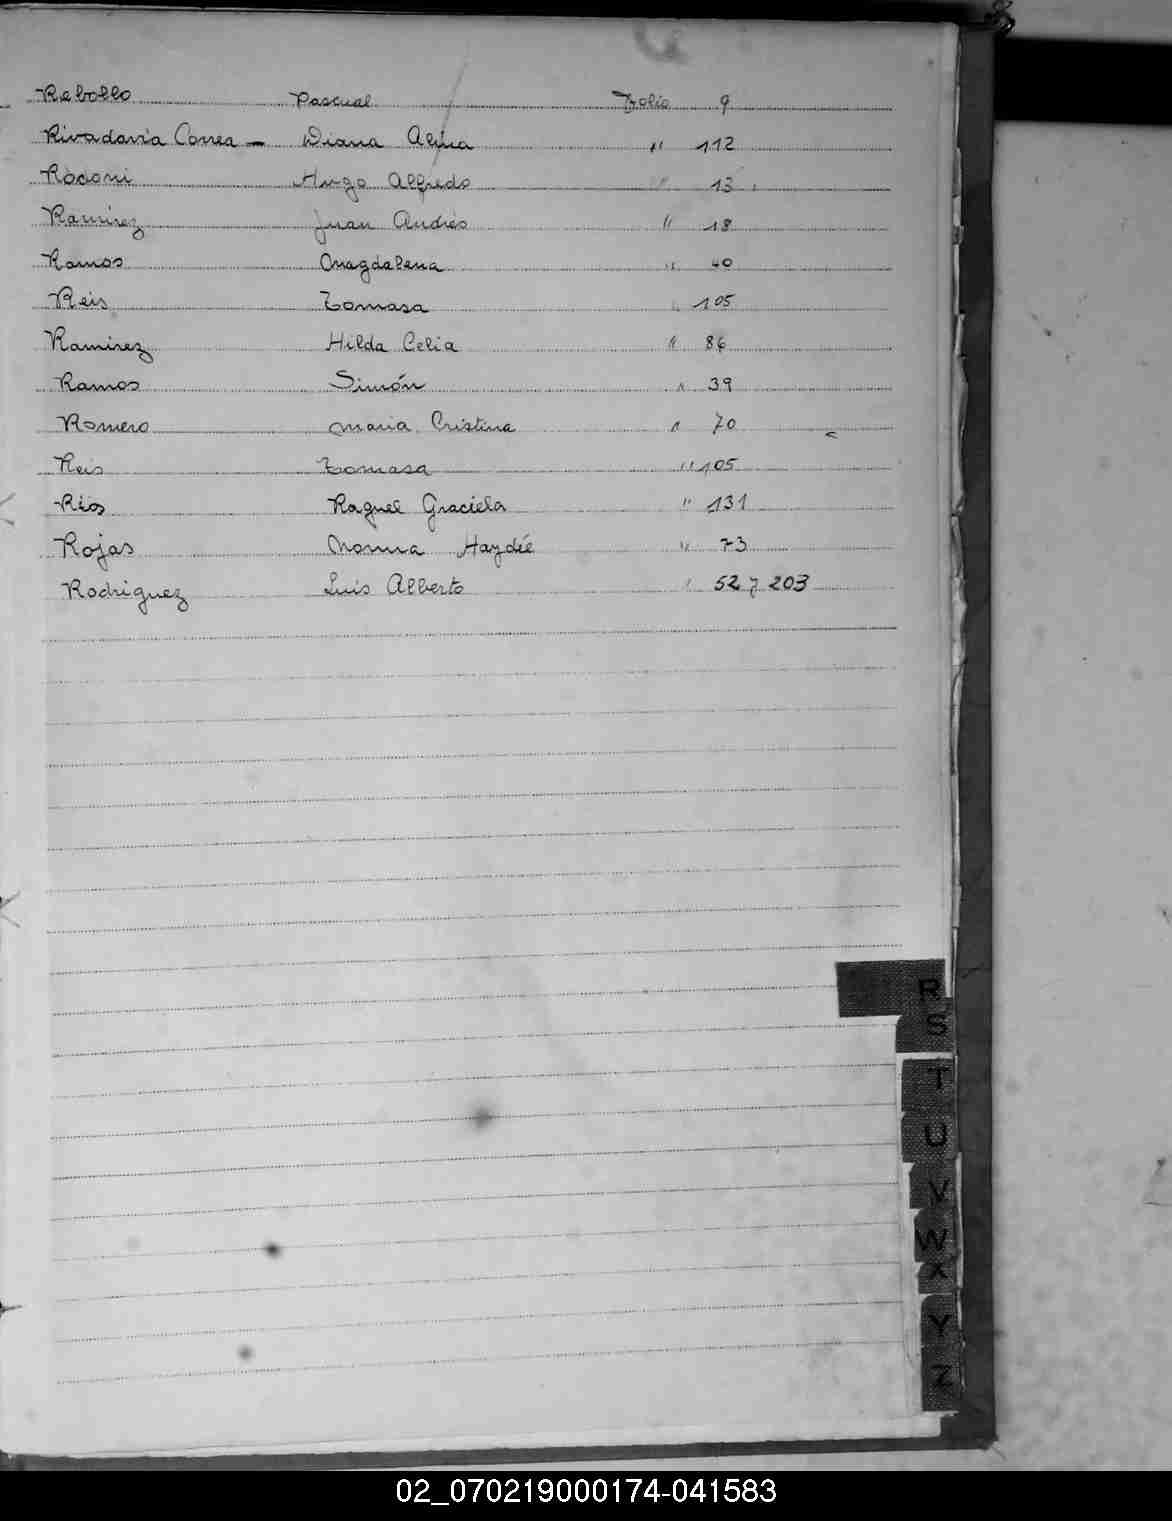 Rebollo Pascual Folio 9
Rivadavia Correa - Diana Alina " 112
Rodoni Hugo Alfredo " 13
Ramirez Juan Andrés " 18
Ramos Magdalena " 40
Reis Tomasa " 105
Ramirez Hilda Celia " 86
Ramos Simón " 39
Romero Maria Cristina " 70
Reis Tomasa " 105
Ríos Raquel Graciela " 131
Rojas Norma Haydée " 73
Rodriguez Luis Alberto " 52 y 203
R
S
T
U
V
W
X
Y
Z
02_070219000174-041583